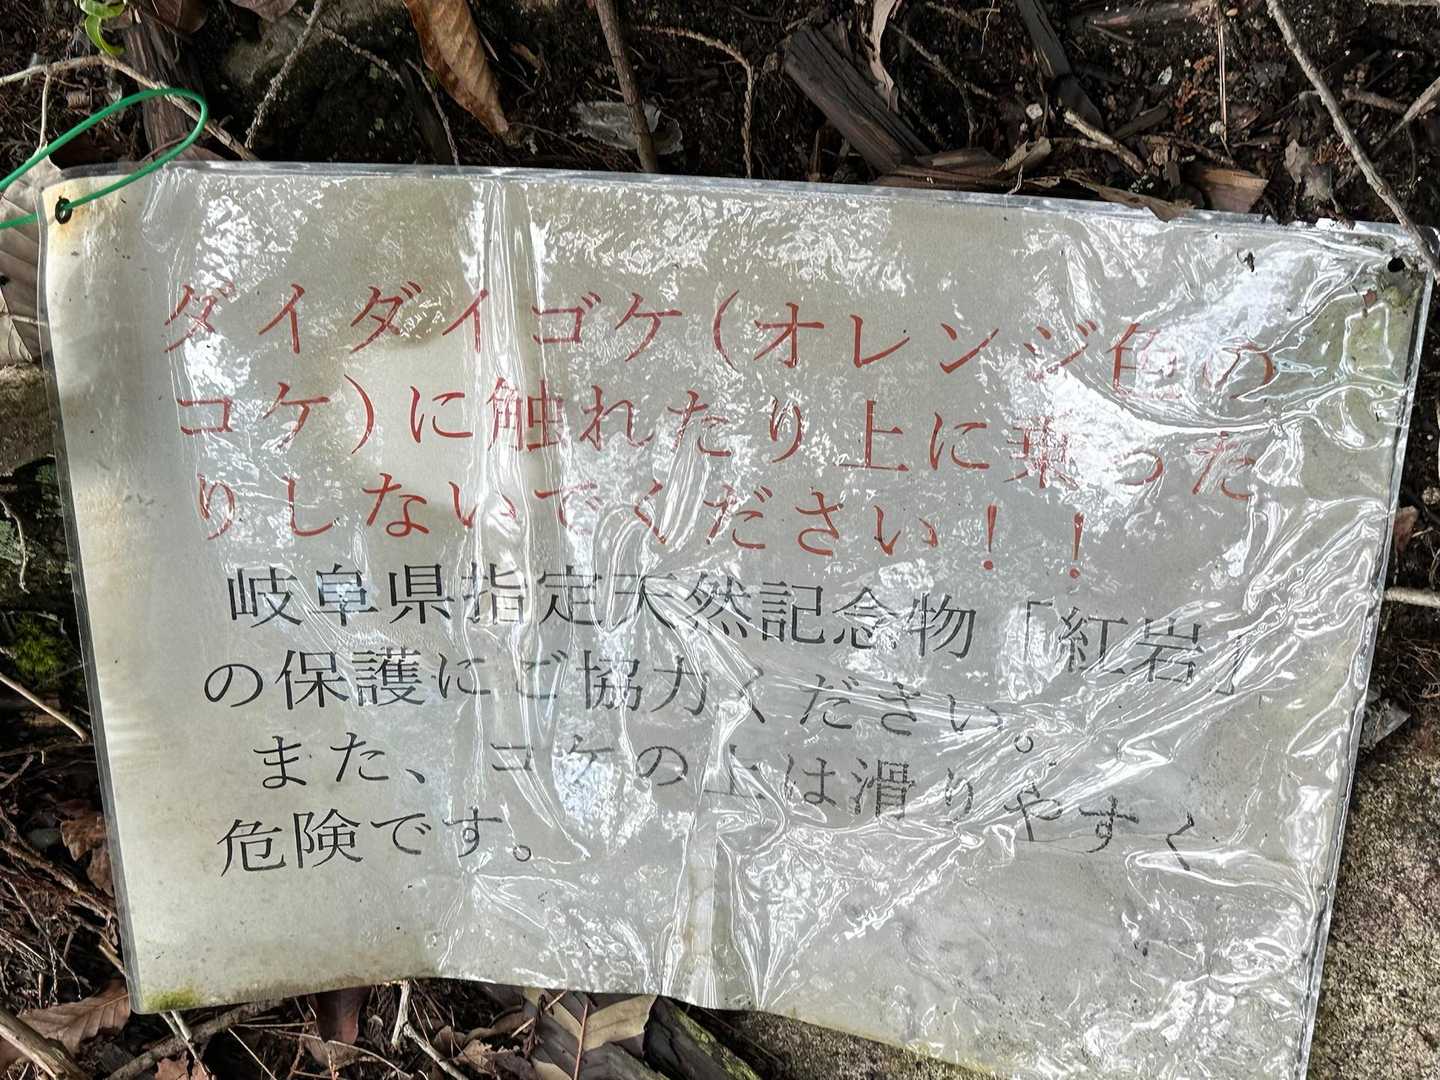 ダイダイゴケ(オレンジ色の
コケ)に触れたり上に乗った
りしないでください!!
岐阜県指定天然記念物「紅岩」
の保護にご協力ください。
また、コケの上は滑りやすく
危険です。